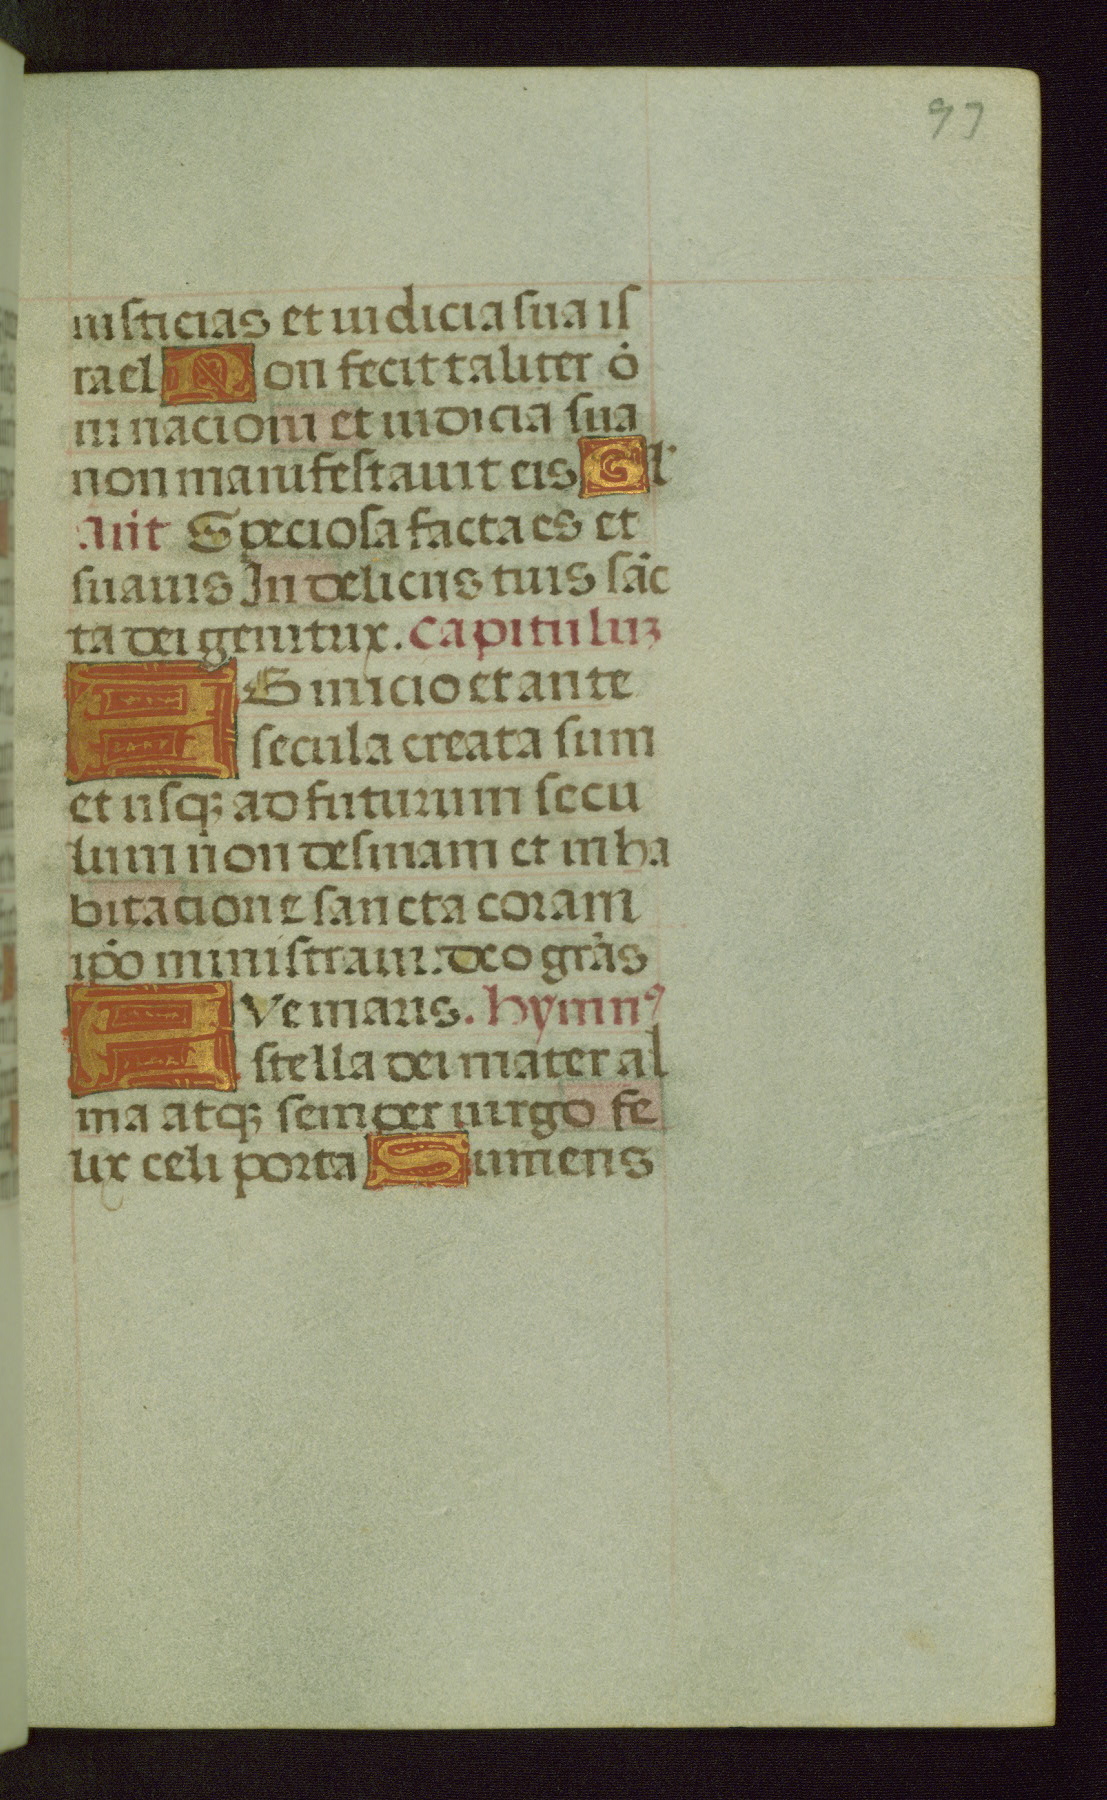 97
iusticias et iudicia sua is
rael Non fecit taliter o᷒
ni nacioni et iudicia sua
non manifestavit eis Gl'
Ant Speciosa facta es et
suauis In deliciis tuis sāc
ta dei genitrix. Capituluz
AB inicio et ante
secula creata sum
et usqꝫ ad futurum secu
lum non desinam et in ha
bitacione sancta coram
ip̄o ministraui. deo grās
AVe maris. hymnꝰ
stella dei mater al
ma atqꝫ semper uirgo fe
lix celi porta Sumens